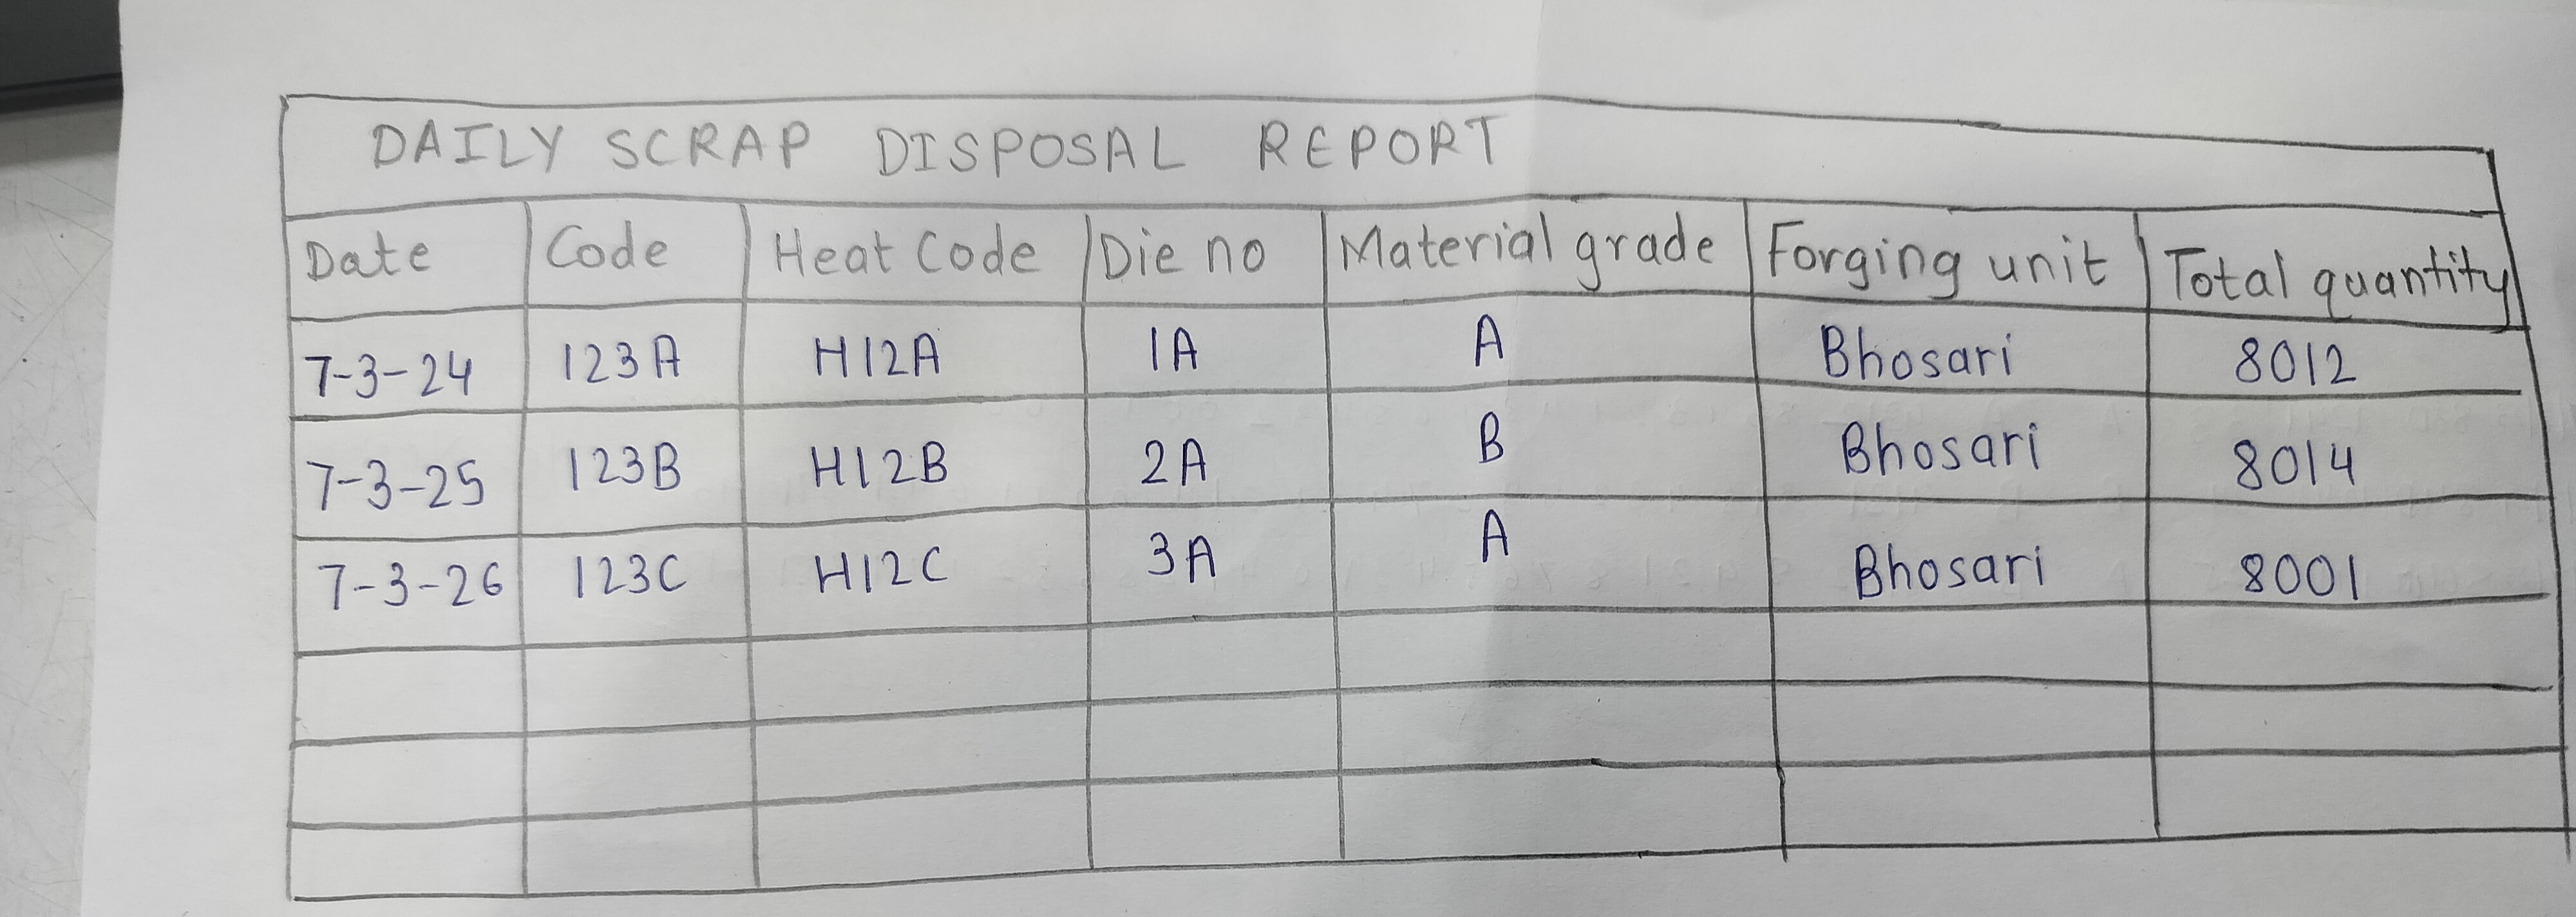 DAILY SCRAP DISPOSAL REPORT
Date Code Heat Code Die no Material grade Forging unit Total quantity
7-3-24 123A H12A 1A A Bhosari 8012
7-3-25 123B H12B 2A B Bhosari 8014
7-3-26 123C H12C 3A A Bhosari 8001